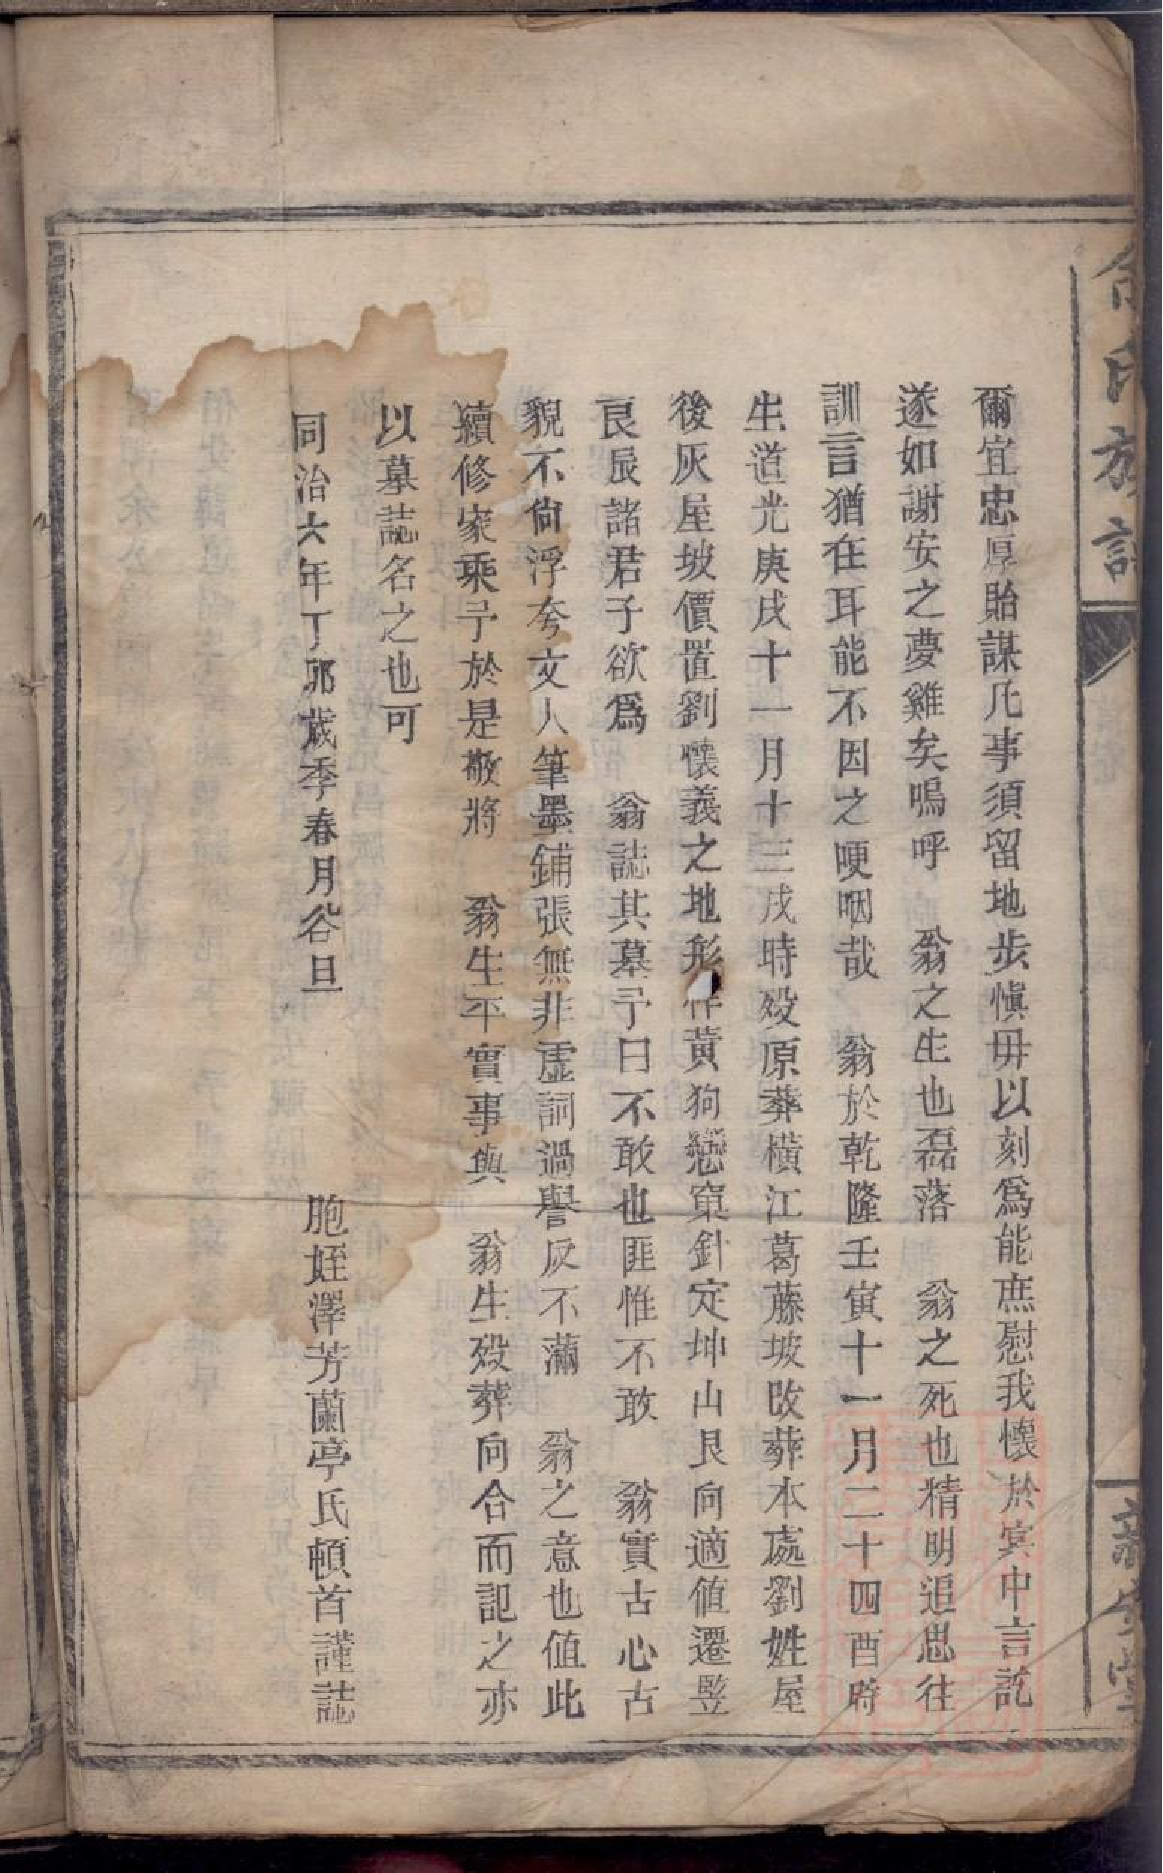 爾宜忠厚貽謀凡事須留地步慎毋以刻為能庶慰我懷於冥中言訖
遂如謝安之夢雞矣嗚呼 翁之生也磊落 翁之死也精明追思往
訓言猶在耳能不因之哽咽哉 翁於乾隆壬寅十一月二十四酉時
生道光庚戌十一月十三戌時歿原葬橫江葛藤坡改葬本處劉姓屋
後灰屋坡價置劉懷義之地形作黃狗戀窠針定坤山艮向適值遷竪
良辰諸君子欲為 翁誌其墓予曰不敢也匪惟不敢 翁實古心古
貌不尙浮夸文人筆墨鋪張無非虛詞過譽反不滿 翁之意也值此
續修家乘予於是敬將 翁生平實事與 翁生歿葬向合而記之亦
以墓誌名之也可
同治六年丁夘歲季春月谷旦 胞姪澤芳蘭亭氏頓首謹誌
氏族譜
堂